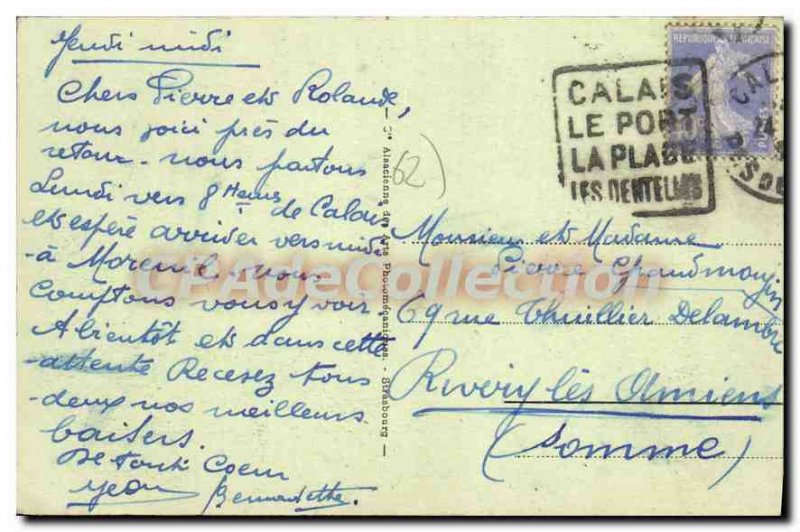 Jeudi midi
Chers Pierre et Rolande,
nous voici près du
retour - nous partons
Lundi vers 8 Heures
de Calais
et espère arriver vers midi
- à Moreuil - nous
comptons vous y voir.
A bientôt et dans cette
- attente Recevez tous
- deux nos meilleurs
baisers.
de tout Coeur
Jean Bernadette.
Cie Alsacienne des Arts Photomécaniques. - Strasbourg
62)
CALAIS
LE PORT
LA PLAGE
LES DENTELLES
RÉPUBLIQUE FRANÇAISE
CAL
24
PAS DE
Monsieur et Madame
Pierre Grandmougin
69 rue Thuillier Delambre
Rivery les Amiens
(Somme)
CPAdeCollection